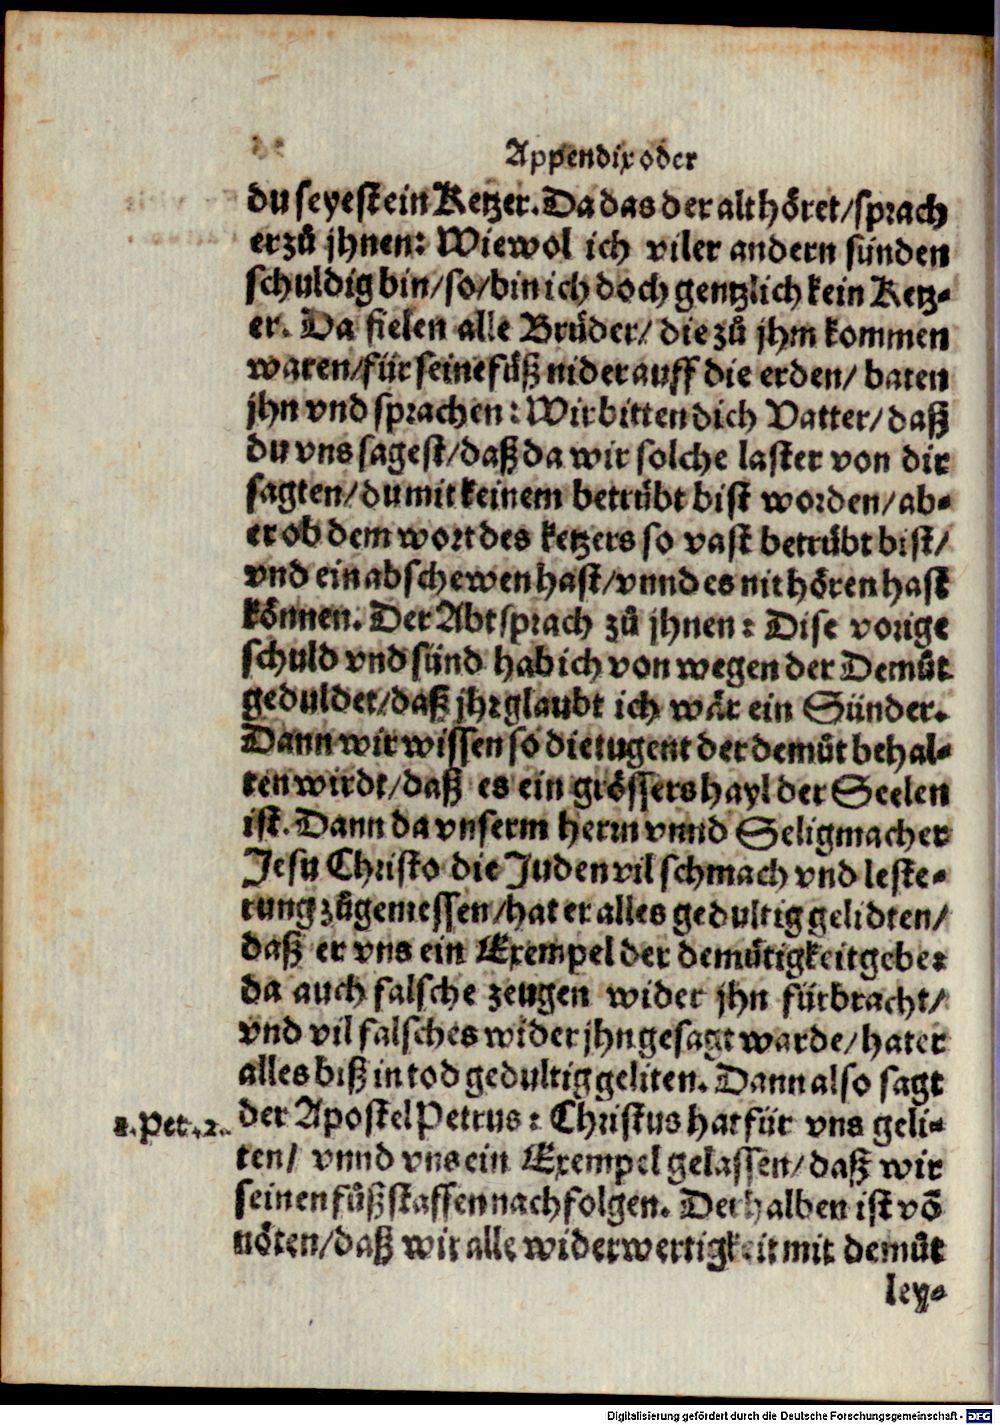 Appendix oder
du seyest ein Ketzer. Da das der alt höret/ sprach
er zů jhnen: Wiewol ich viler andern sünden
schuldig bin/ so/ bin ich doch gentzlich kein Ketz-
er. Da fielen alle Brůder/ die zů jhm kommen
waren/ für seine fůß nider auff die erden/ baten
jhn vnd sprachen: Wir bitten dich Vatter/ daß
du vns sagest/ daß da wir solche laster von dir
sagten/ du mit keinem betrübt bist worden/ ab-
er ob dem wort des ketzers so vast betrübt bist/
vnd ein abschewen hast/ vnnd es nit hören hast
können. Der Abt sprach zů jhnen: Dise vorige
schuld vnd sünd hab ich von wegen der Demůt
geduldet/ daß jhr glaubt ich wär ein Sünder.
Dann wir wissen so die tugent der demůt behal-
ten wirdt/ daß es ein grössers hayl der Seelen
ist. Dann da vnserm herrn vnnd Seligmacher
Jesu Christo die Juden vil schmach vnd leste-
rung zůgemessen/ hat er alles gedultig gelidten/
daß er vns ein Exempel der demůtigkeit gebe:
da auch falsche zeugen wider jhn fürbracht/
vnd vil falsches wider jhn gesagt warde/ hat er
alles biß in tod gedultig geliten. Dann also sagt
1. Pet. 2. der Apostel Petrus: Christus hat für vns geli-
ten/ vnnd vns ein Exempel gelassen/ daß wir
seinen fůßstaffen nachfolgen. Derhalben ist võ
nöten/ daß wir alle widerwertigkeit mit demůt
ley-
Digitalisierung gefördert durch die Deutsche Forschungsgemeinschaft - DFG